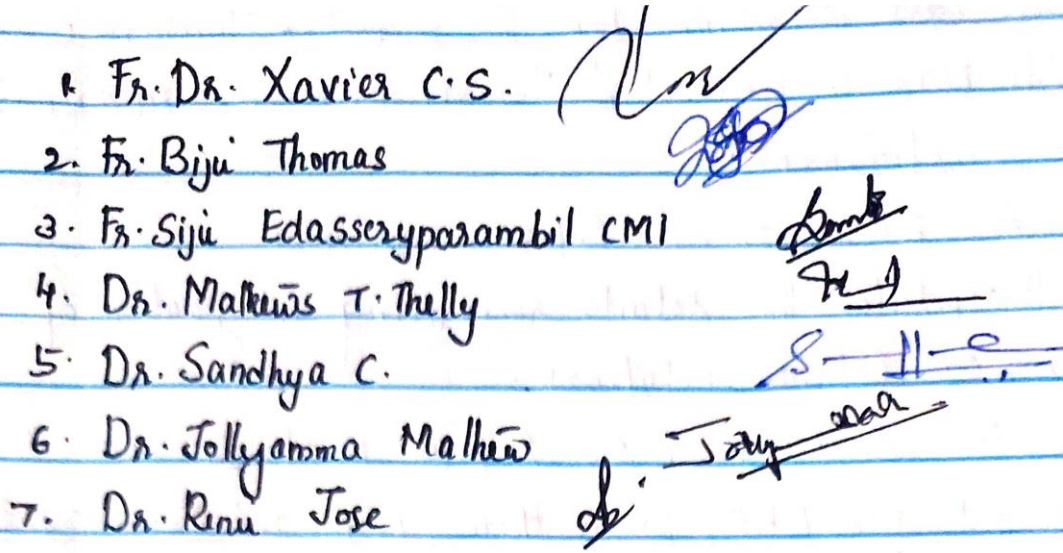 1. Fr. Dr. Xavier C.S.
2. Fr. Biju Thomas
3. Fr. Siju Edasseryparambil CMI
4. Dr. Mathews T. Thelly
5. Dr. Sandhya C.
6. Dr. Jollyamma Mathew Jolly
7. Dr. Renu Jose